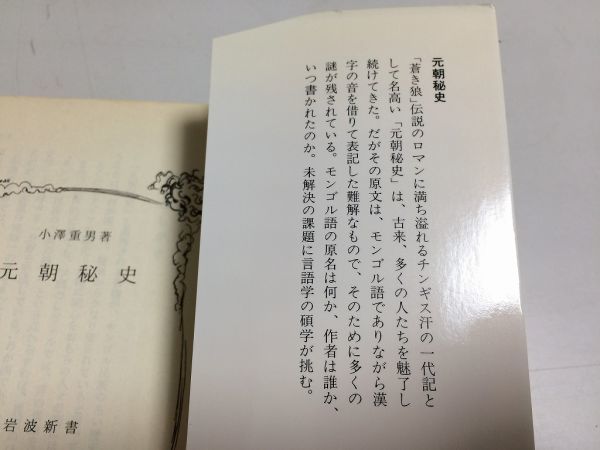 元朝秘史
「蒼き狼」伝説のロマンに満ち溢れるチンギス汗の一代記と
して名高い「元朝秘史」は、古来、多くの人たちを魅了し
続けてきた。だがその原文は、モンゴル語でありながら漢
字の音を借りて表記した難解なもので、そのために多くの
謎が残されている。モンゴル語の原名は何か、作者は誰か、
いつ書かれたのか。未解決の課題に言語学の碩学が挑む。
小澤重男著
元朝秘史
岩波新書